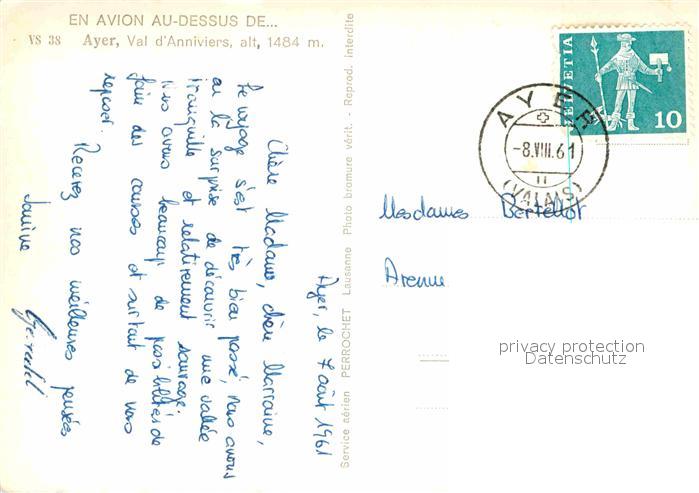 EN AVION AU-DESSUS DE...
VS 38 Ayer, Val d'Anniviers, alt, 1484 m.
Ayer, le 7 août 1961
Chère Madame, chère Marraine,
Le voyage s'est très bien passé, nous avons
eu la surprise de découvrir une vallée
tranquille et relativement sauvage.
Nous avons beaucoup de possibilités de
faire des courses et surtout de nous
reposer.
Recevez nos meilleures pensées
Janine
Service aérien PERROCHET Lausanne Photo bromure vérit. - Reprod. interdite
HELVETIA
10
AYER
-8.VIII.61
11
(VALAIS)
Mesdames Bertellot
Avenue
privacy protection
Datenschutz